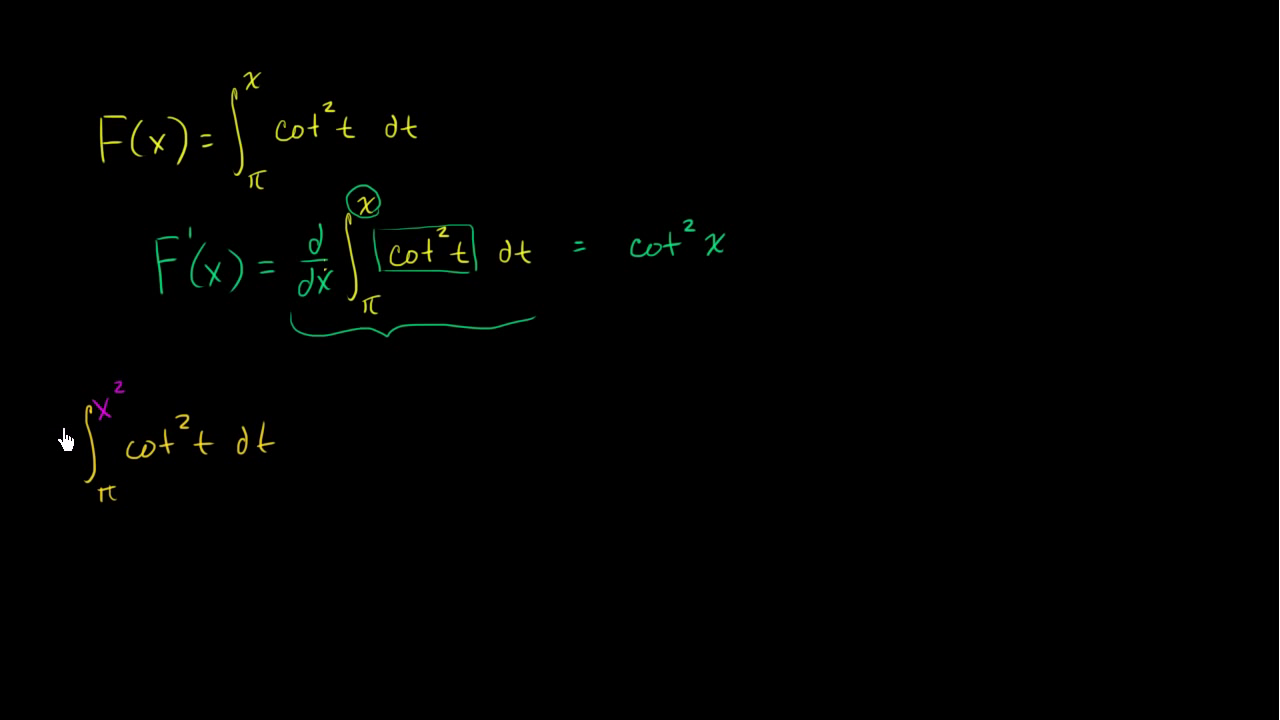 F(x) = ∫_π^x cot² t dt
F'(x) = d/dx ∫_π^x cot² t dt = cot² x
∫_π^x² cot² t dt